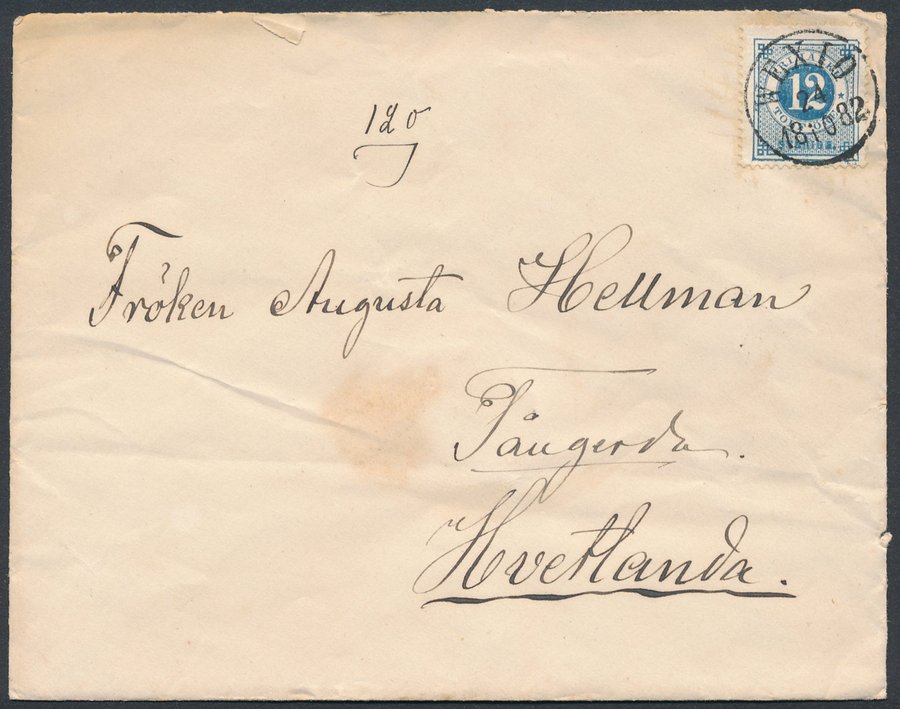 WEXIÖ
24
18 10 82
12
120
Fröken Augusta Hellman
Tångerda.
Hvetlanda.